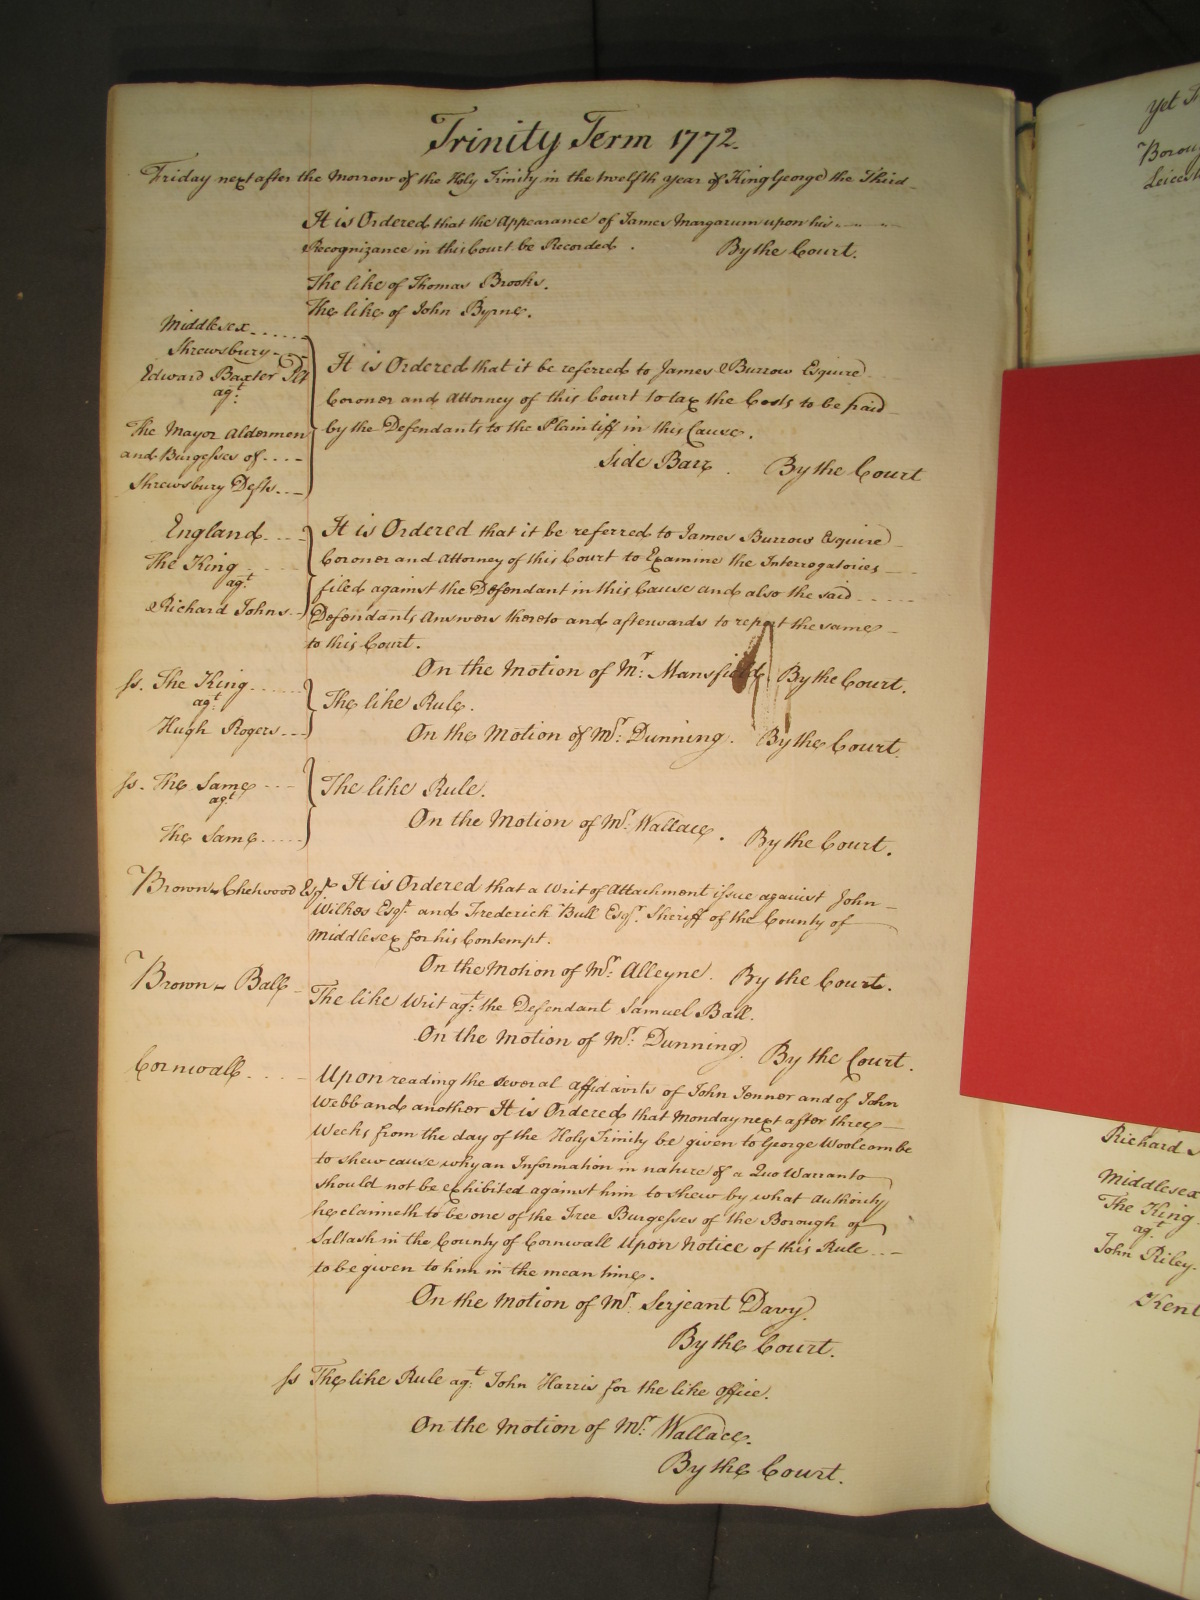 Trinity Term 1772.
Friday next after the Morrow of the Holy Trinity in the twelfth year of King George the Third
It is Ordered that the Appearance of James Margarum upon his
Recognizance in this Court be Recorded . By the Court.
The like of Thomas Brooks.
The like of John Byrne.
Middlesex
Shrewsbury
Edward Baxter Plt
agt.
The Mayor Aldermen
and Burgesses of
Shrewsbury Defts
It is Ordered that it be referred to James Burrow Esquire
Coroner and Attorney of this Court to tax the Costs to be paid
by the Defendants to the Plaintiff in this Cause.
Side Barr . By the Court
England
The King
agt
Richard Johns
It is Ordered that it be referred to James Burrow Esquire
Coroner and Attorney of this Court to Examine the Interrogatories
filed against the Defendant in this Cause and also the said
Defendants Answers thereto and afterwards to report the same
to this Court.
On the Motion of Mr. Mansfield By the Court.
ss. The King
agt
Hugh Rogers
The like Rule.
On the Motion of Mr. Dunning. By the Court.
ss. The Same
agt
The Same
The like Rule.
On the Motion of Mr. Wallace. By the Court.
Brown v Chetwood Esqr It is Ordered that a Writ of Attachment issue against John
Wilkes Esqr. and Frederick Bull Esqr. Sheriff of the County of
Middlesex for his Contempt.
On the Motion of Mr. Alleyne. By the Court.
Brown v Ball
The like Writ agt. the Defendant Samuel Ball.
On the Motion of Mr. Dunning. By the Court.
Cornwall
Upon reading the several affidavits of John Jenner and of John
Webb and another It is Ordered that Monday next after three
Weeks from the day of the Holy Trinity be given to George Woolcombe
to shew cause why an Information in nature of a Quo Warranto
should not be exhibited against him to shew by what Authority
he claimeth to be one of the Free Burgesses of the Borough of
Saltash in the County of Cornwall Upon Notice of this Rule
to be given to him in the mean time.
On the Motion of Mr. Serjeant Davy.
By the Court.
ss The like Rule agt. John Harris for the like office.
On the Motion of Mr. Wallace.
By the Court.
Yet
Richard
Middlesex
The King
agt
John Riley.
Kent